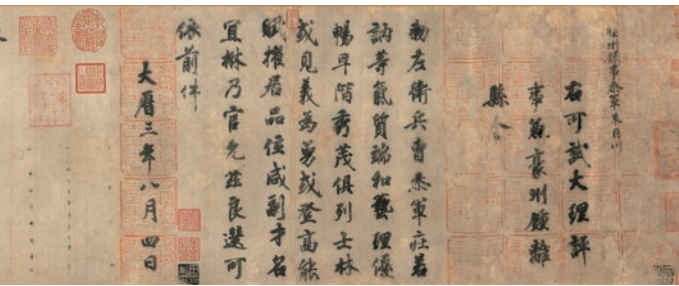 右可試大理評
事兼豪州鍾離
縣令
勅左衛兵曹參軍莊若
訥等氣質端和藝理優
暢早階秀茂俱列士林
或見義為勇或登高能
賦擢居品位咸副才名
宜楙乃官允茲良選可
依前件
大曆三年八月四日